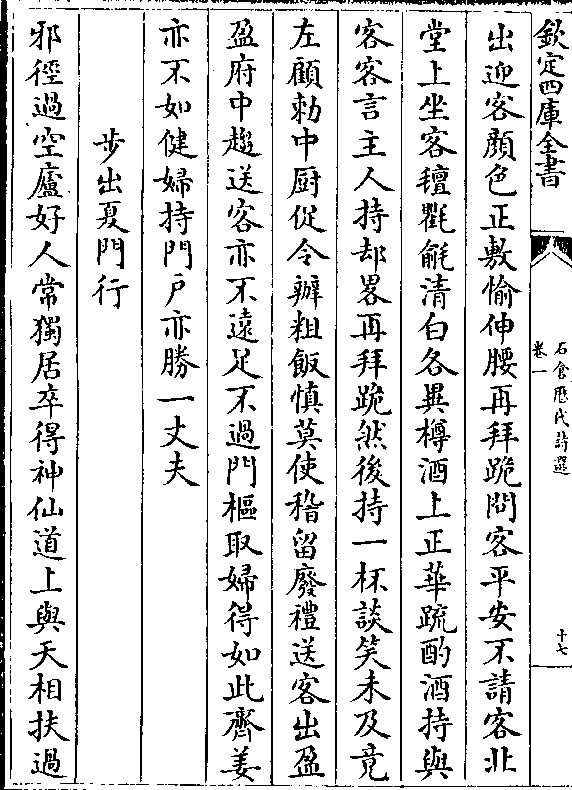 欽定四庫全書
石倉歷代詩選
卷一
十七
出迎客顔色正敷愉伸腰再拜跪問客平安不請客北
堂上坐客氊氍毹清白各異樽酒上正華疏酌酒持與
客客言主人持却畧再拜跪然後持一杯談笑未及竟
左顧勅中厨促令辦粗飯慎莫使稽留廢禮送客出盈
盈府中趨送客亦不遠足不過門樞取婦得如此齊姜
亦不如健婦持門戸亦勝一丈夫
步出夏門行
邪徑過空廬好人常獨居卒得神仙道上與天相扶過